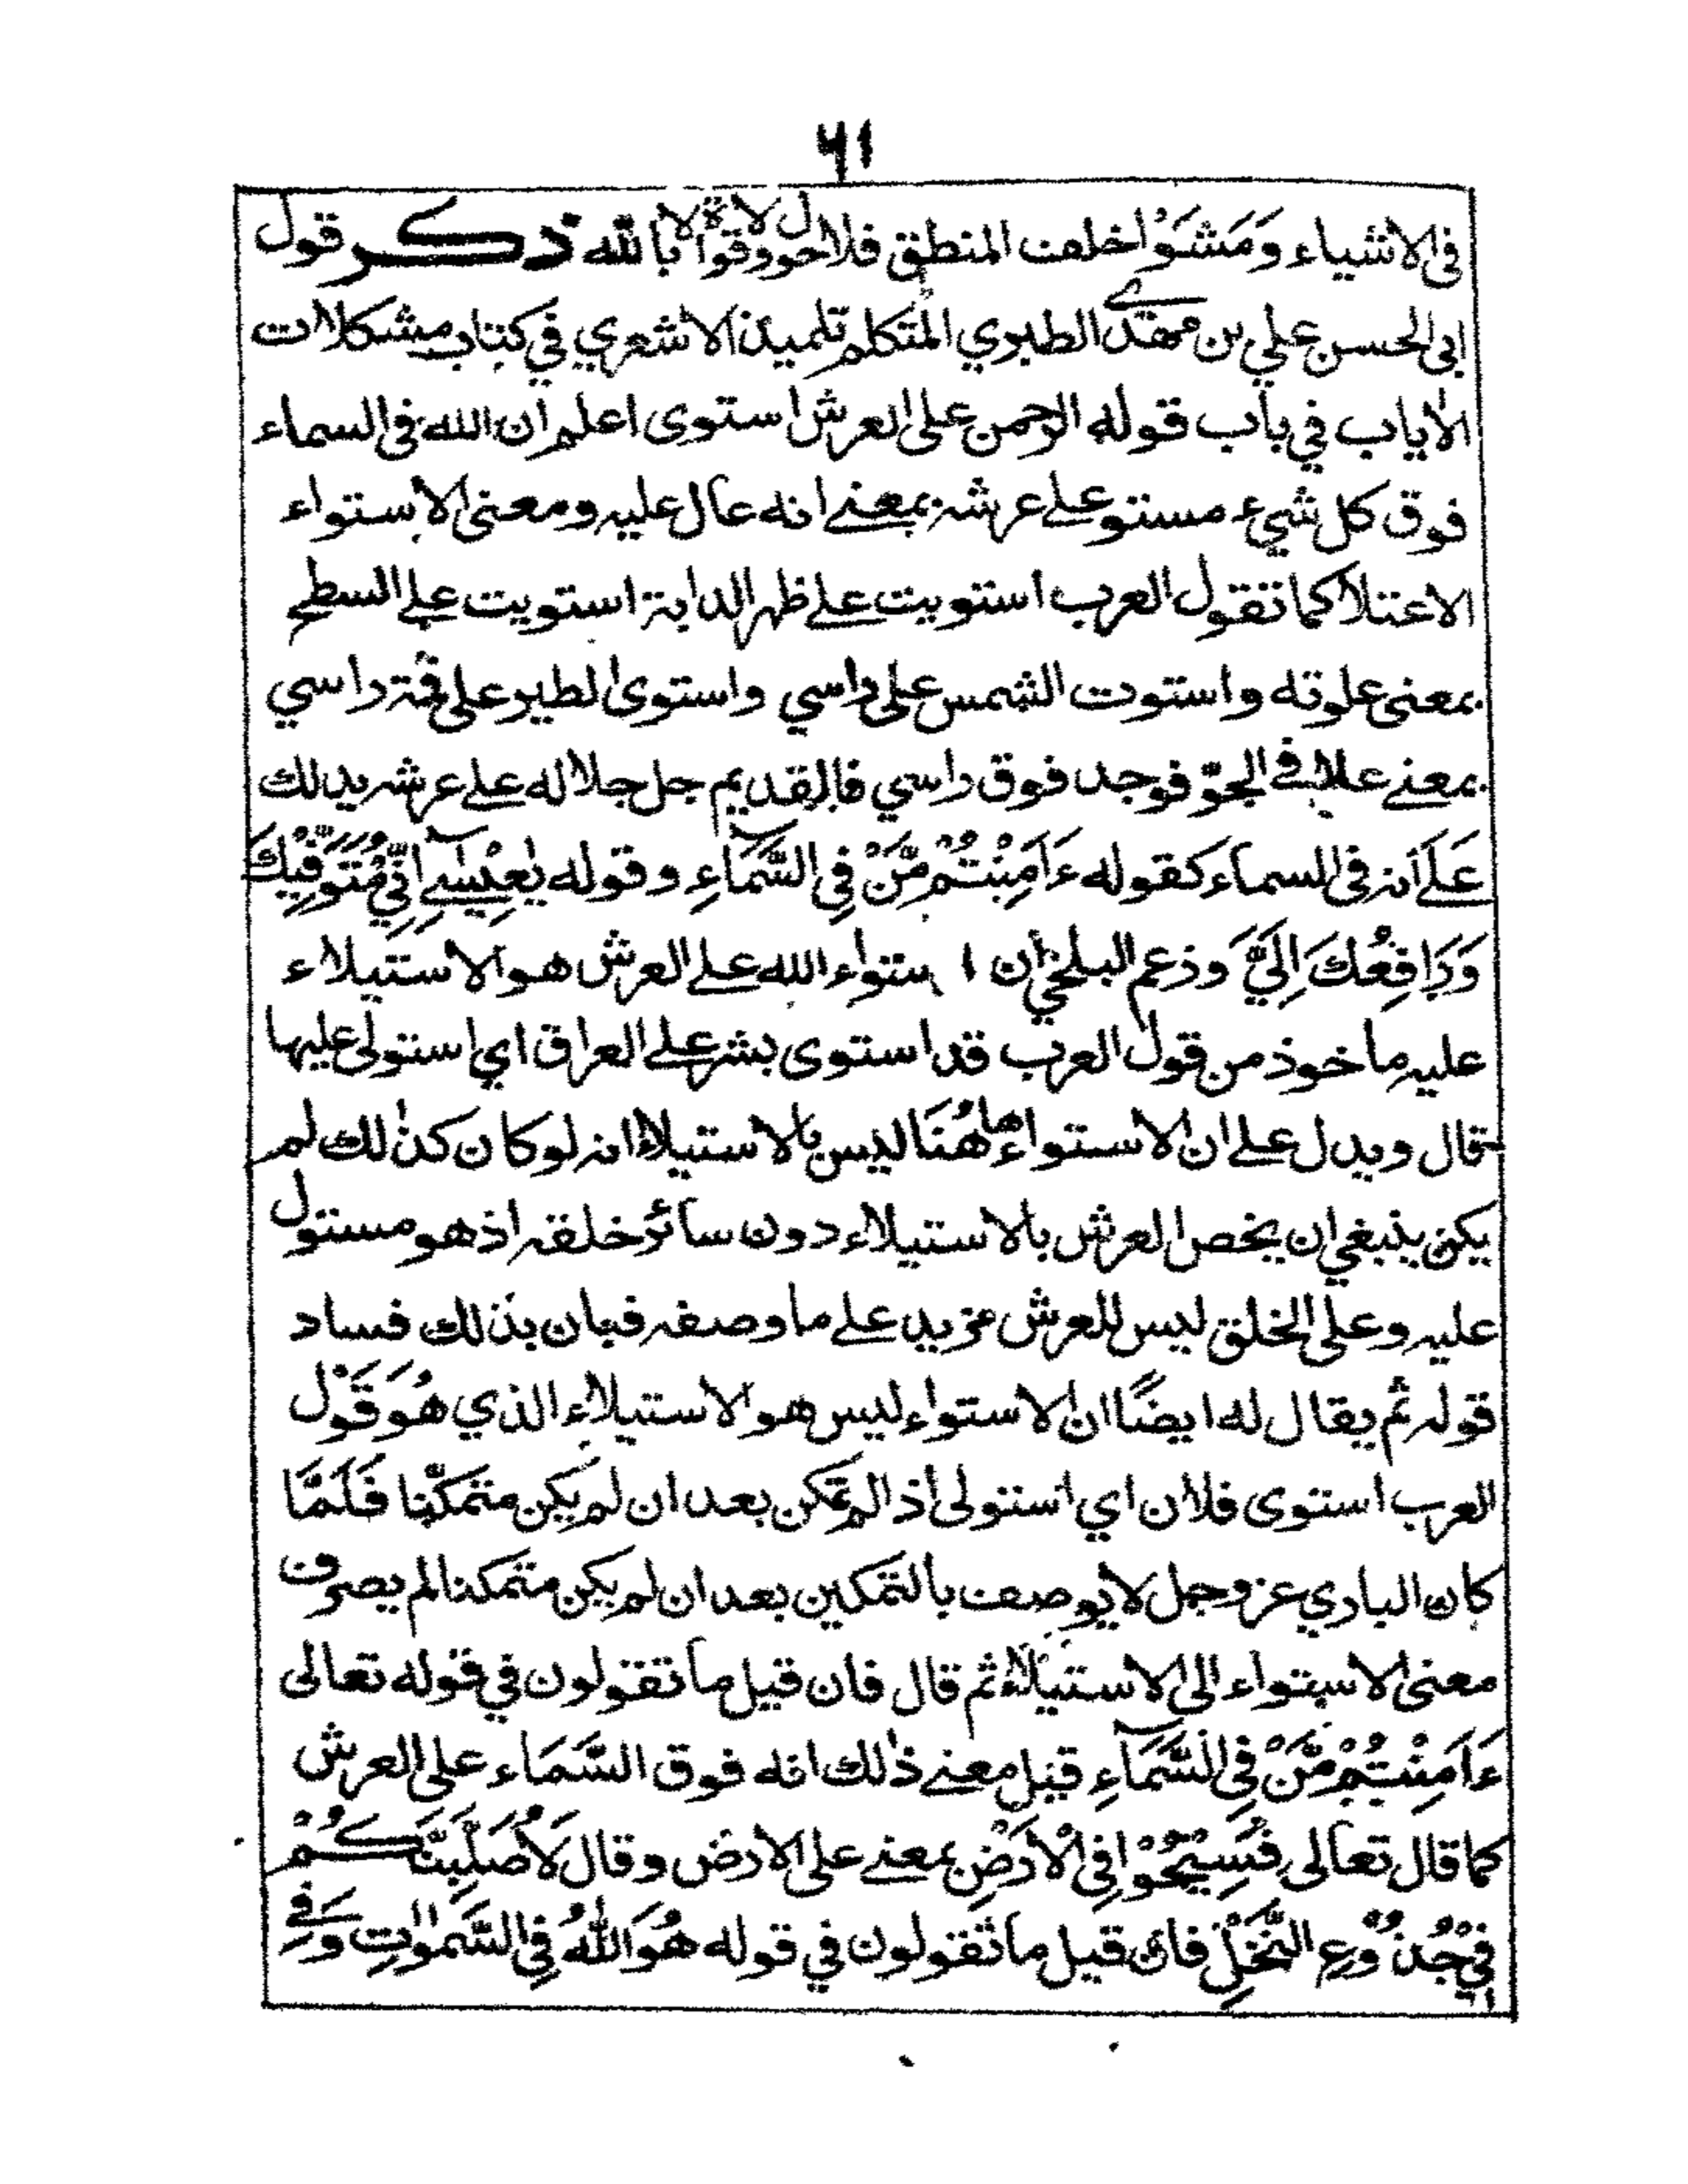 ٦١
فى الاشياء وَمَشَوْا خلف المنطق فلا حول ولا قوة الا بالله ذكر قول
ابى الحسن علي بن مهدي الطبري المتكلم تلميذ الاشعري في كتاب مشكلات
الأياب في باب قوله الرحمن على العرش استوى اعلم ان الله فى السماء
فوق كل شيء مستو على عرشه بمعنى انه عال عليه ومعنى الاستواء
الاعتلا كما تقول العرب استويت على ظهر الدابة استويت على السطح
بمعنى علوته واستوت الشمس على راسي واستوى الطير على قمة راسي
بمعنى علا في الجوّ فوجد فوق راسي فالقديم جل جلاله على عرشه يدلك
عَلَى انه فى السماء كقوله ءَاَمِنْتُمْ مَّنْ فِي السَّمَآءِ وقوله يٰعِيْسٰٓى اِنِّيْ مُتَوَفِّيْكَ
وَرَافِعُكَ اِلَيَّ وزعم البلخي ان استواء الله على العرش هو الاستيلاء
عليه ماخوذ من قول العرب قد استوى بشر على العراق اي استولى عليها
قال ويدل على ان الاستواء هاهُنَا ليس بالاستيلاء انه لو كان كذٰلك لم
يكن ينبغي ان يخص العرش بالاستيلاء دون سائر خلقه اذ هو مستول
عليه وعلى الخلق ليس للعرش مزيد على ما وصفه فبان بذلك فساد
قوله ثم يقال له ايضًا ان الاستواء ليس هو الاستيلاء الذي هُوَ قَوْل
العرب استوى فلان اي استولى اذا لم تمكن بعد ان لم يكن متمكّنا فَلَمَّا
كان الباري عز وجل لا يوصف بالتمكين بعد ان لم يكن متمكنا لم يصرف
معنى الاستواء الى الاستيلاء ثم قال فان قيل ما تقولون في قوله تعالى
ءَاَمِنْتُمْ مَّنْ فِي السَّمَآءِ قيل معنى ذٰلك انه فوق السَّمَاء على العرش
كما قال تعالى فَسِيْحُوْا فِي الْاَرْضِ بمعنى على الارض وقال لَاُصَلِّبَنَّكُمْ
فِيْ جُذُوْعِ النَّخْلِ فان قيل ما تقولون في قوله هُوَ اللّٰهُ فِي السَّمٰوٰتِ وَفِي